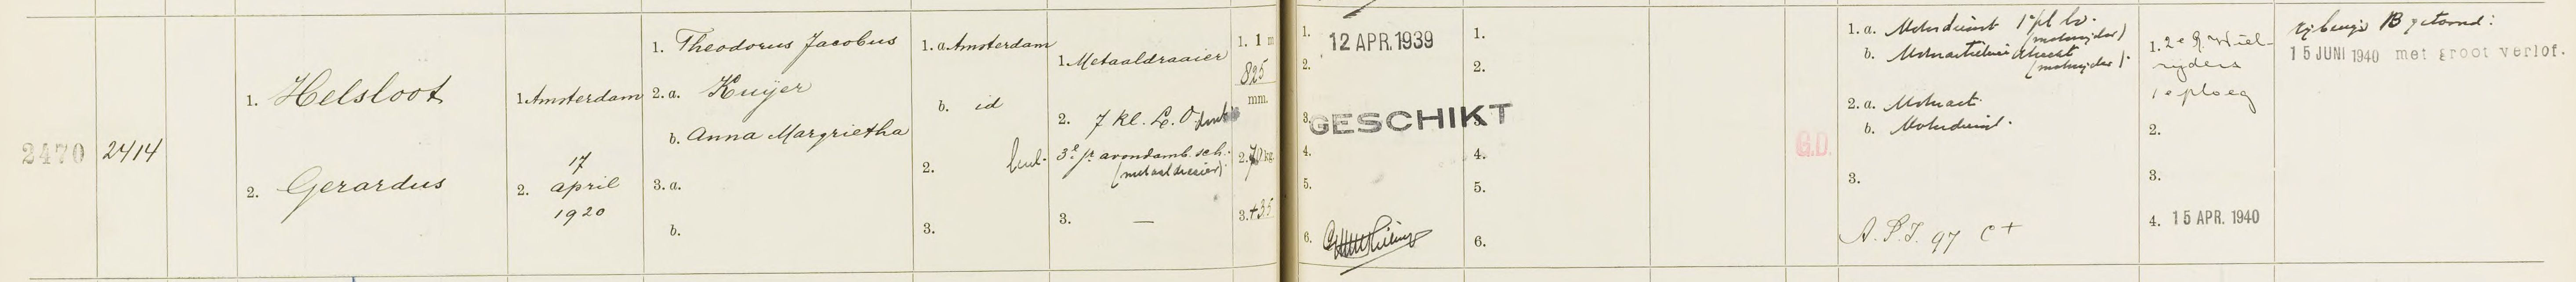 2470
2414
1. Helsloot
2. Gerardus
1. Amsterdam
2. 17
april
1920
1. Theodorus Jacobus
2. a. Kuijer
b. Anna Margrietha
3. a.
b.
1. a. Amsterdam
b. id
2.
3.
1. Metaaldraaier
2. 7 kl. L.O.
3e jr. avondamb. sch.
(metaaldraaier)
3. —
1. 1 m
825
mm.
2. 70 kg.
3. +35
1.
12 APR. 1939
2.
3. GESCHIKT
4.
5.
6.
1.
2.
3.
4.
5.
6.
G.D.
1. a. Motordienst
(motorrijder)
b.
(motorrijder)
2. a. Motorart.
b. Motordienst.
3.
A.S.T. 97 C+
1. 2e R. Wiel-
rijders
1e ploeg
2.
3.
4. 15 APR. 1940
rijbewijs B getoond:
15 JUNI 1940 met groot verlof.